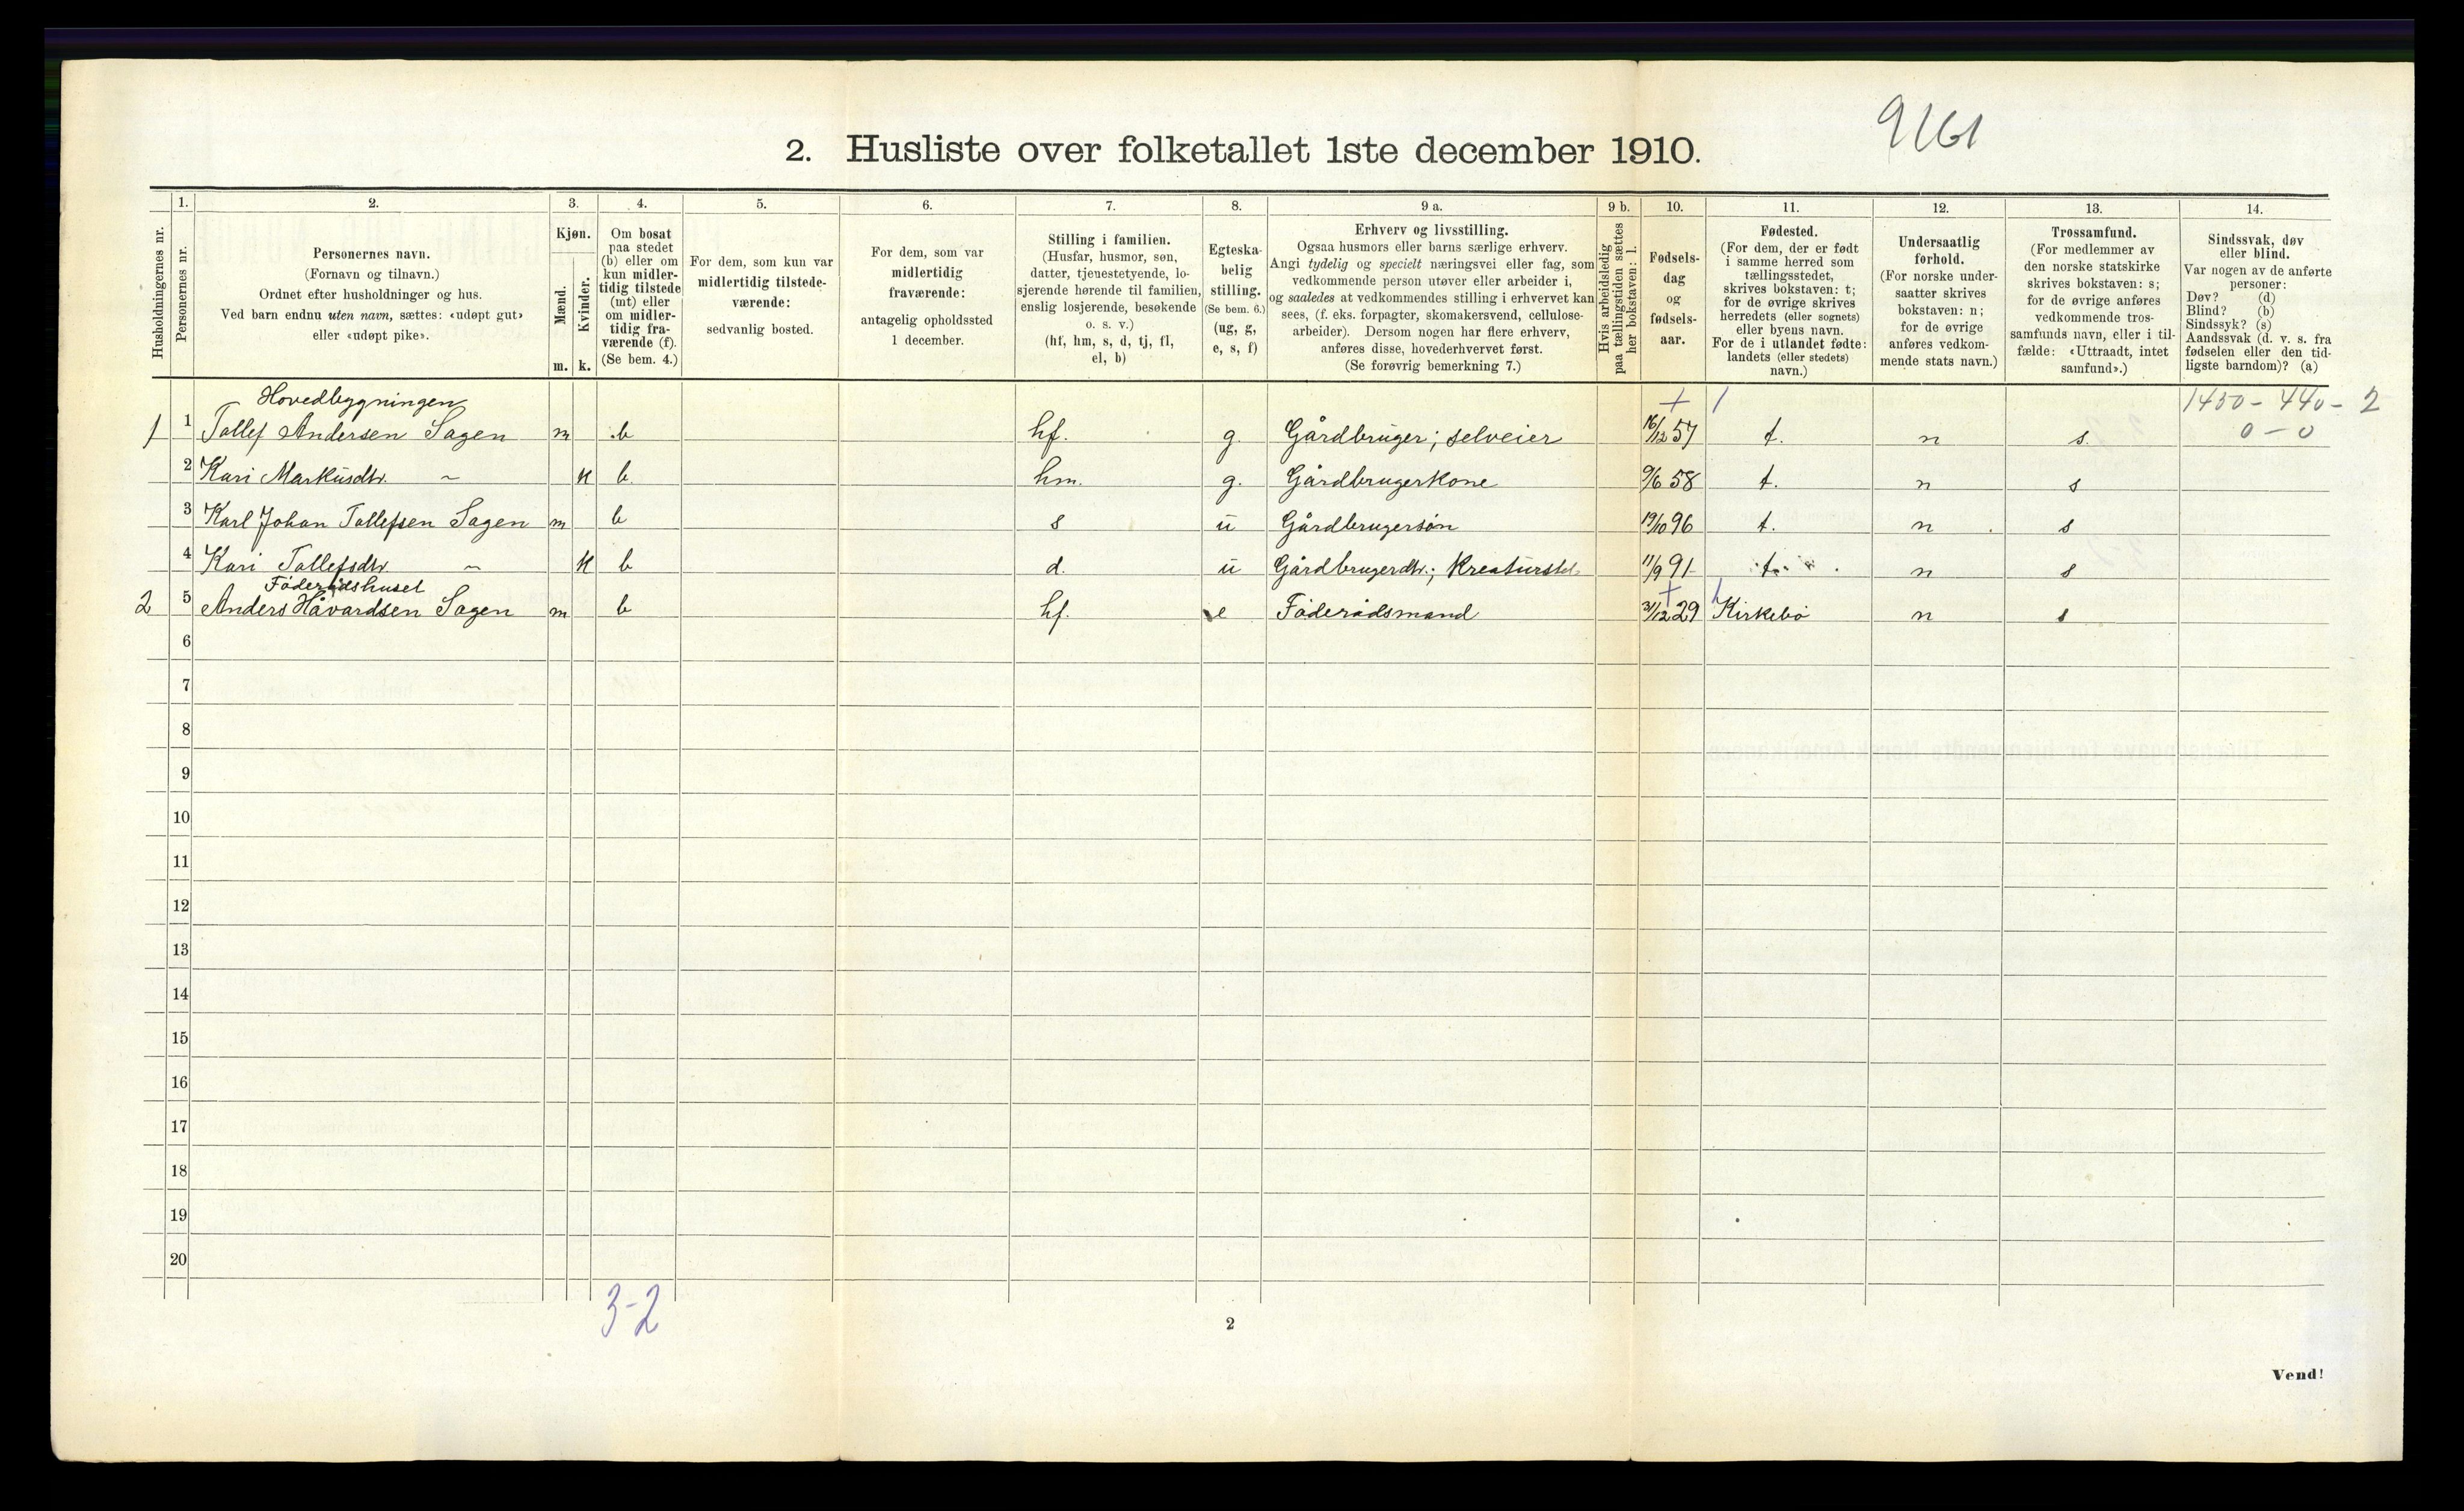 9161
2. Husliste over folketallet 1ste december 1910.
Husholdningernes nr.
1.
Personernes nr.
2.
Personernes navn.
(Fornavn og tilnavn.)
Ordnet efter husholdninger og hus.
Ved barn endnu uten navn, sættes: «udøpt gut»
eller «udøpt pike».
3.
Kjøn.
Mænd.
Kvinder.
m. k.
4.
Om bosat
paa stedet
(b) eller om
kun midler-
tidig tilstede
(mt) eller
om midler-
tidig fra-
værende (f).
(Se bem. 4.)
5.
For dem, som kun var
midlertidig tilstede-
værende:
sedvanlig bosted.
6.
For dem, som var
midlertidig
fraværende:
antagelig opholdssted
1 december.
7.
Stilling i familien.
(Husfar, husmor, søn,
datter, tjenestetyende, lo-
sjerende hørende til familien,
enslig losjerende, besøkende
o. s. v.)
(hf, hm, s, d, tj, fl,
el, b)
8.
Egteska-
belig
stilling.
(Se bem. 6.)
(ug, g,
e, s, f)
9 a.
Erhverv og livsstilling.
Ogsaa husmors eller barns særlige erhverv.
Angi tydelig og specielt næringsvei eller fag, som
vedkommende person utøver eller arbeider i,
og saaledes at vedkommendes stilling i erhvervet kan
sees, (f. eks. forpagter, skomakersvend, cellulose-
arbeider). Dersom nogen har flere erhverv,
anføres disse, hovederhvervet først.
(Se forøvrig bemerkning 7.)
9 b.
Hvis arbeidsledig
paa tællingstiden sættes
her bokstaven: l.
10.
Fødsels-
dag
og
fødsels-
aar.
11.
Fødested.
(For dem, der er født
i samme herred som
tællingsstedet,
skrives bokstaven: t;
for de øvrige skrives
herredets (eller sognets)
eller byens navn.
For de i utlandet fødte:
landets (eller stedets)
navn.)
12.
Undersaatlig
forhold.
(For norske under-
saatter skrives
bokstaven: n;
for de øvrige
anføres vedkom-
mende stats navn.)
13.
Trossamfund.
(For medlemmer av
den norske statskirke
skrives bokstaven: s;
for de øvrige anføres
vedkommende tros-
samfunds navn, eller i til-
fælde: «Uttraadt, intet
samfund».)
14.
Sindssvak, døv
eller blind.
Var nogen av de anførte
personer:
Døv? (d)
Blind? (b)
Sindssyk? (s)
Aandssvak (d. v. s. fra
fødselen eller den tid-
ligste barndom)? (a)
Hovedbygningen 1450 - 440 - 2
1 1 Tallef Andersen Sagen m b hf. g. Gårdbruger; selveier 16/12 57 t. n s. 0 - 0
2 Kari Markusdtr. ~ k b. hm. g. Gårdbrugerkone 9/6 58 t. n s
3 Karl Johan Tallefsen Sagen m b s u Gårdbrugersøn 19/10 96 t. n s
4 Kari Tallefsdtr. ~ k b d. u Gårdbrugerdtr.; Kreaturstel 11/9 91 t. n s
Føderådshuset
2 5 Anders Håvardsen Sagen m b hf. e Føderådsmand 31/12 29 Kirkebø n s
6
7
8
9
10
11
12
13
14
15
16
17
18
19
20
3-2
2
Vend!